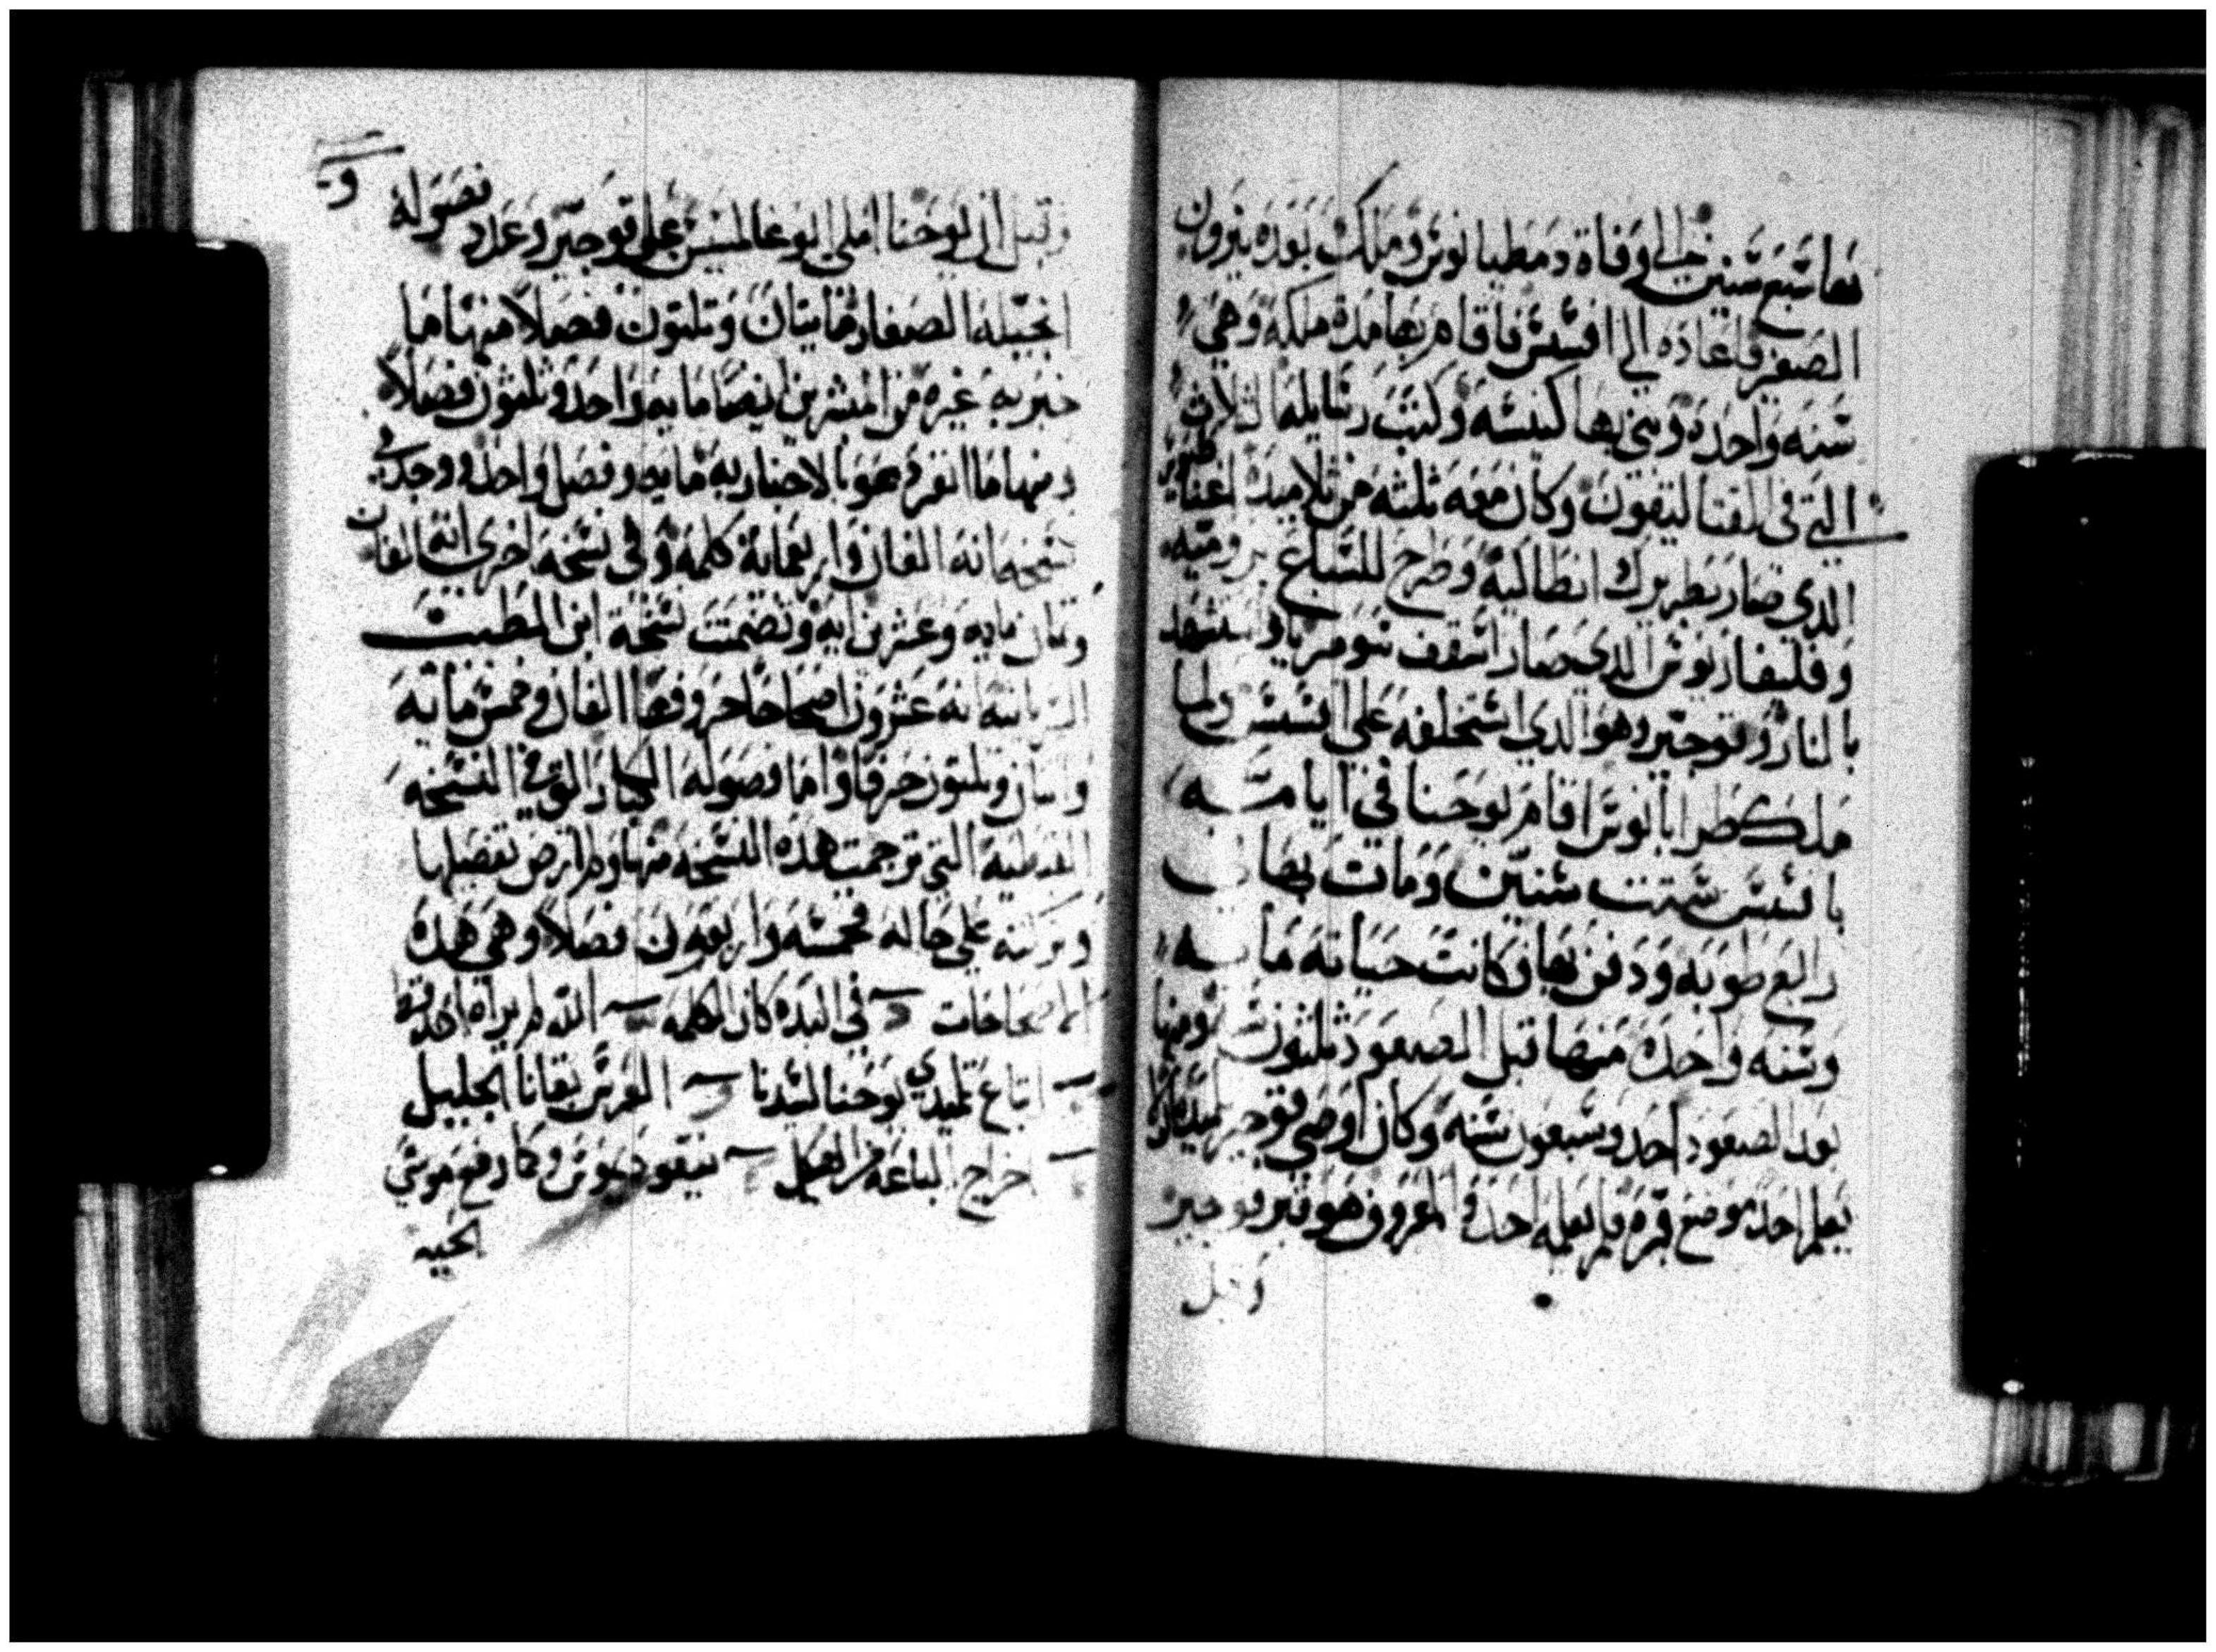 بها سبع سنين الي وفاة دمطيانوس وملك بعده نيرون
الصغير فاعاده الي افسس فاقام بها مدة ملكه وهي
سنه واحده وبني بها كنيسه وكتب رسايله الثلاث
التي في القتاليقون وكان معه ثلثه من تلاميده اغناطيوس
الدي صار بطريرك انطاكيه وطرح للسباع بروميه
وفليقاربوس الدي صار اسقف سومرنا واستشهد
بالنار وبوجير وهو الدي استخلفه علي افسس ولما
ملك طرايانوس اقام يوحنا في ايامه
بافسس ست سنين ومات بها
رابع طوبه ودفن بها وكانت حياته مايه
وسنه واحده منها قبل الصعود ثلثون سنه ومنها
بعد الصعود احد وسبعون سنه وكان اوصي بوجير تلميده الا
يعلم احد موضع قبره فلم يعلمه احد والمعروف هو قبر بوجير
وقيل
و
وقيل ان يوحنا املي ابوغالمسيس علي بوجير وعدد فصوله
انجيله الصغار مايتان وثلثون فصلا منها ما
خبر به غيره من المبشرين ايضا مايه واحد وثلثون فصلا
ومنها ما انفرد هو بالاخبار به مايه وفصل واحد ووجد في
نسخه انه الفان واربعماية كلمه وفي نسخه اخري انها الفان
وثمان مايه وعشرين ايه وتضمنت نسخة ابن المطيب
السريانيه انه عشرون اصحاحا حروفها الفان وخمس مائه
واثنان وثلثون حرفا واما فصوله الكبار التي في النسخه
القبطيه التي ترجمت هده النسخه منها ولم ارض تفصيلها
وتركته علي حاله فخمسه واربعون فصلا وهي هده
الاصحاحات في البده كان الكلمه الله لم يراه احد قط
اتباع تلميدي يوحنا لسيدنا العرس بقانا الجليل
اخراج الباعة من الهيكل نيقوديموس وكما رفع موسي
الحيه